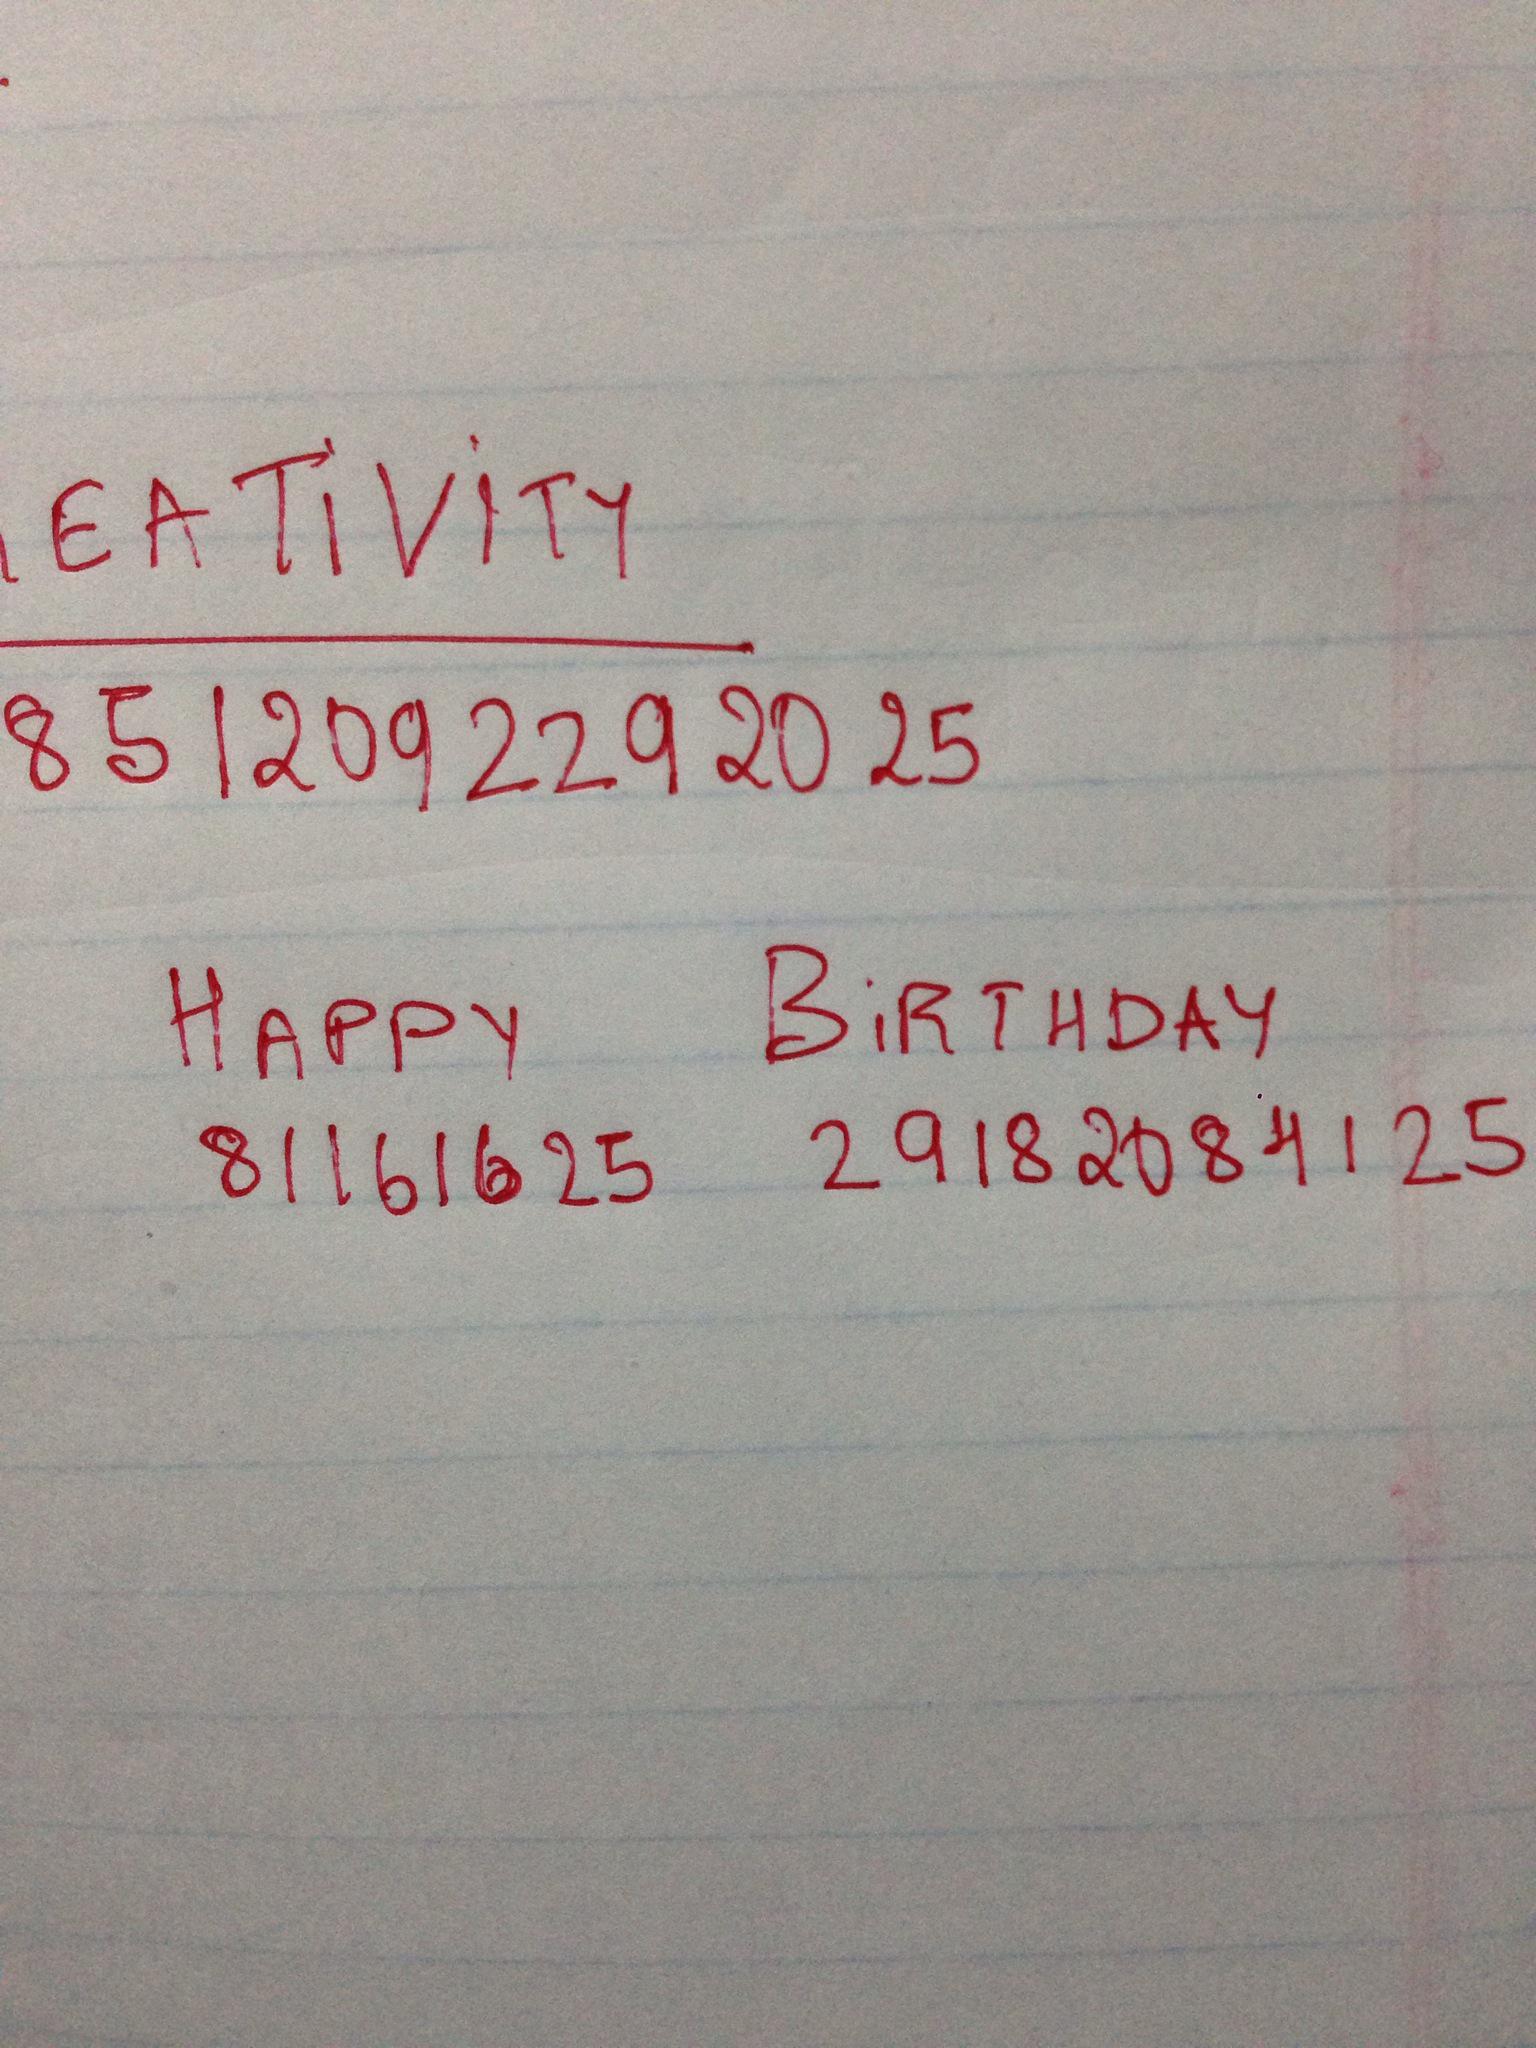 EATiViTY
85 1209 229 20 25
HAPPY BiRTHDAY
81161625 29182084125